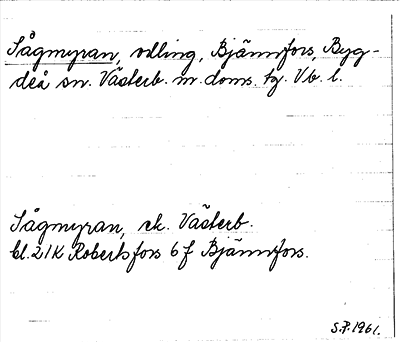 Sågmyran, odling, Bjännfors, Byg-
deå sn. Västerb. m. doms. tg. Vb. l.
Sågmyran, ek. Västerb.
bl. 21K Robertsfors 6f Bjännfors.
S.P. 1961.